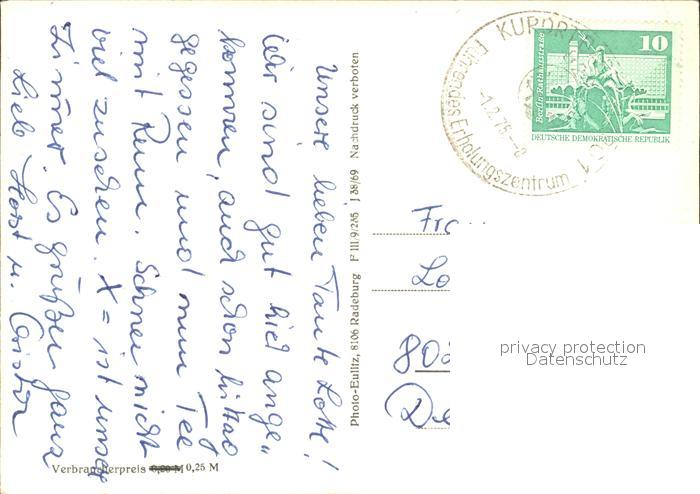 Unsere lieben Tante Lotte!
Wir sind gut hier ange„
kommen, auch schon Mittag
gegessen und nun Tee
mit Rum. Schnee nicht
viel zusehen. X = ist unser
Zimmer. Es grüßen ganz
Lieb Horst u.
Photo-Eulitz, 8106 Radeburg F III/9/285 J 38/69 Nachdruck verboten
Verbraucherpreis 0,20 M 0,25 M
KURORT
Führendes Erholungszentrum
-1.2.75.-8
10
Berlin Rathausstraße
DEUTSCHE DEMOKRATISCHE REPUBLIK
Fr
Lo
80
De
privacy protection
Datenschutz